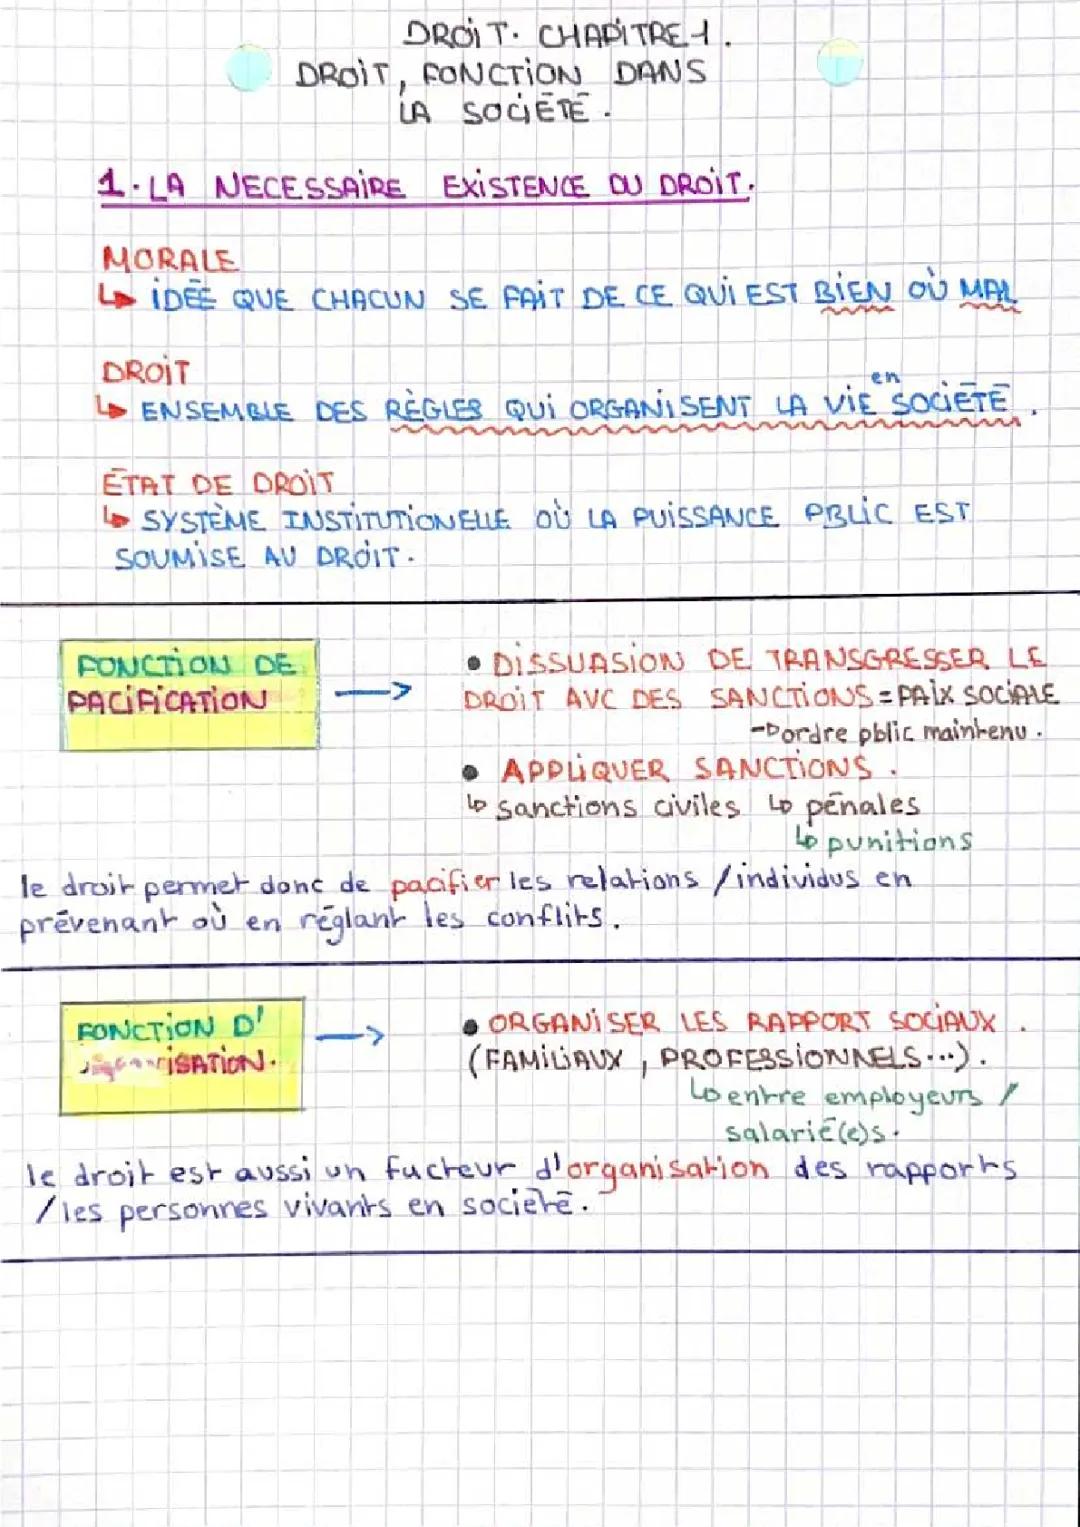 DROIT. CHAPITRE 1.
DROIT, FONCTION DANS
LA SOCIÉTÉ.
1. LA NECESSAIRE EXISTENCE DU DROIT.
MORALE
↳ IDÉE QUE CHACUN SE FAIT DE CE QUI EST BIEN OÙ MAL
DROIT
↳ ENSEMBLE DES RÈGLES QUI ORGANISENT LA VIE en SOCIÉTÉ.
ÉTAT DE DROIT
↳ SYSTÈME INSTITUTIONELLE OÙ LA PUISSANCE PBLIC EST
SOUMISE AU DROIT.
FONCTION DE
PACIFICATION
→
• DISSUASION DE TRANSGRESSER LE
DROIT AVC DES SANCTIONS = PAIX SOCIALE
→ ordre pblic maintenu.
• APPLIQUER SANCTIONS.
↳ sanctions civiles ↳ pénales
↳ punitions
le droit permet donc de pacifier les relations / individus en
prévenant où en réglant les conflits.
FONCTION D'
ISATION.
→
• ORGANISER LES RAPPORT SOCIAUX.
(FAMILIAUX, PROFESSIONNELS...).
↳ entre employeurs /
salarié(e)s.
le droit est aussi un facteur d'organisation des rapports
/ les personnes vivants en société.